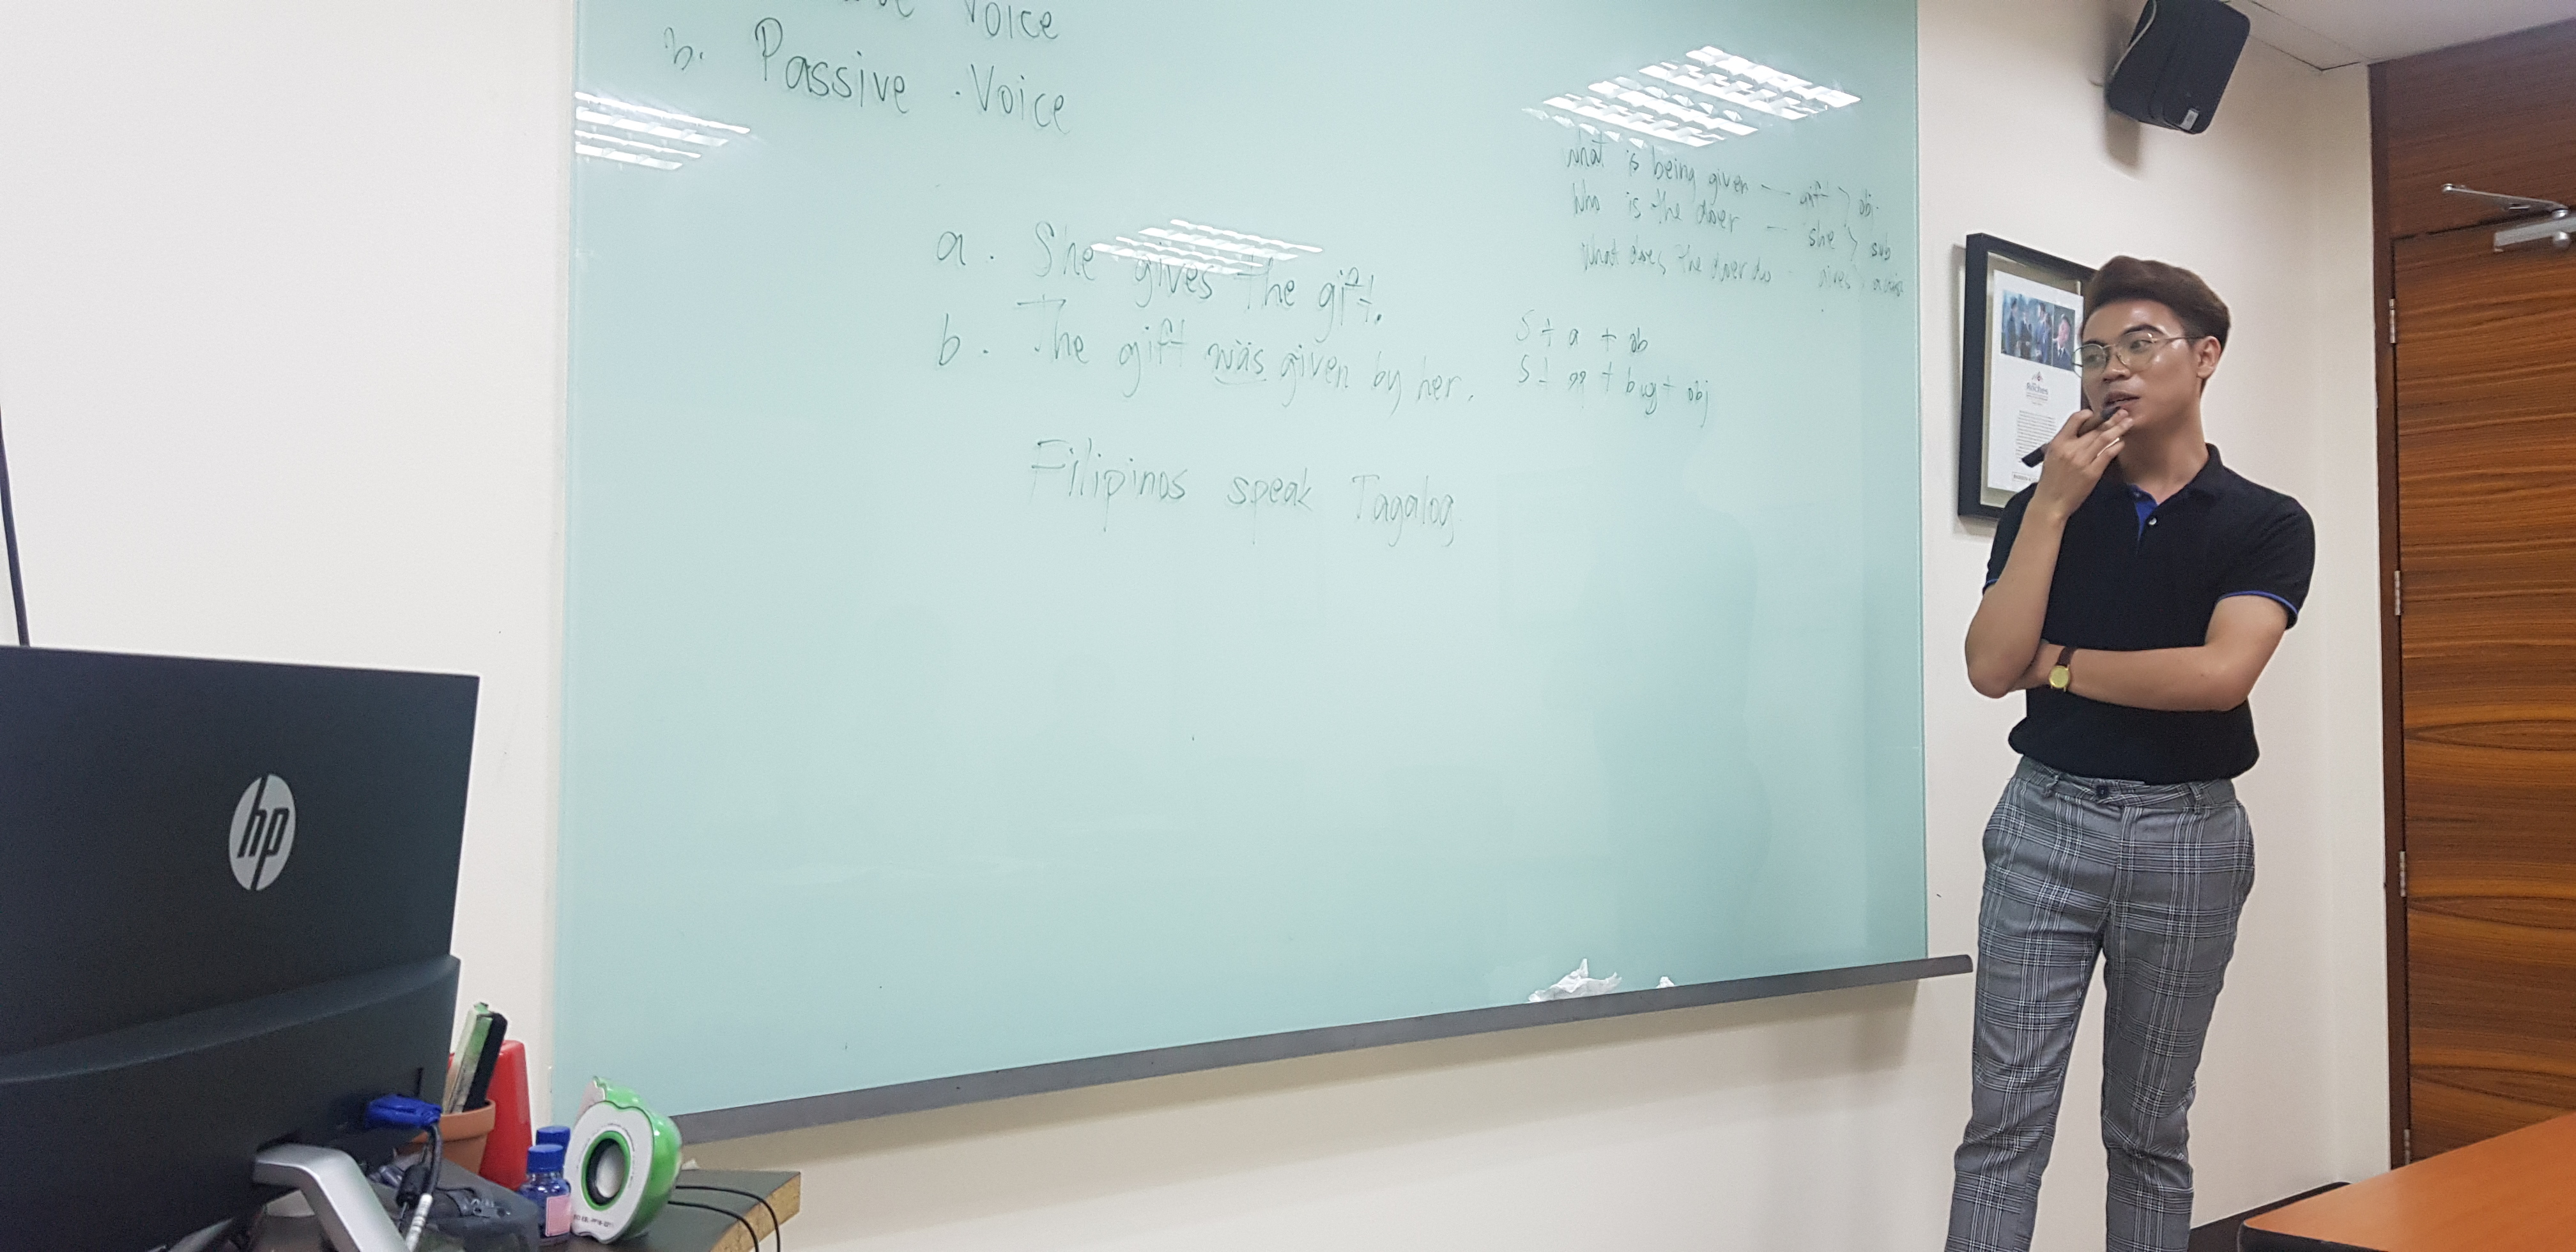 Voice
b. Passive Voice
a. She gives the gift.
b. The gift was given by her.
Filipinos speak Tagalog
What is being given — gift > obj
Who is the doer — she > sub
What does the doer do - gives
S + a + ob
S + + + obj
hp